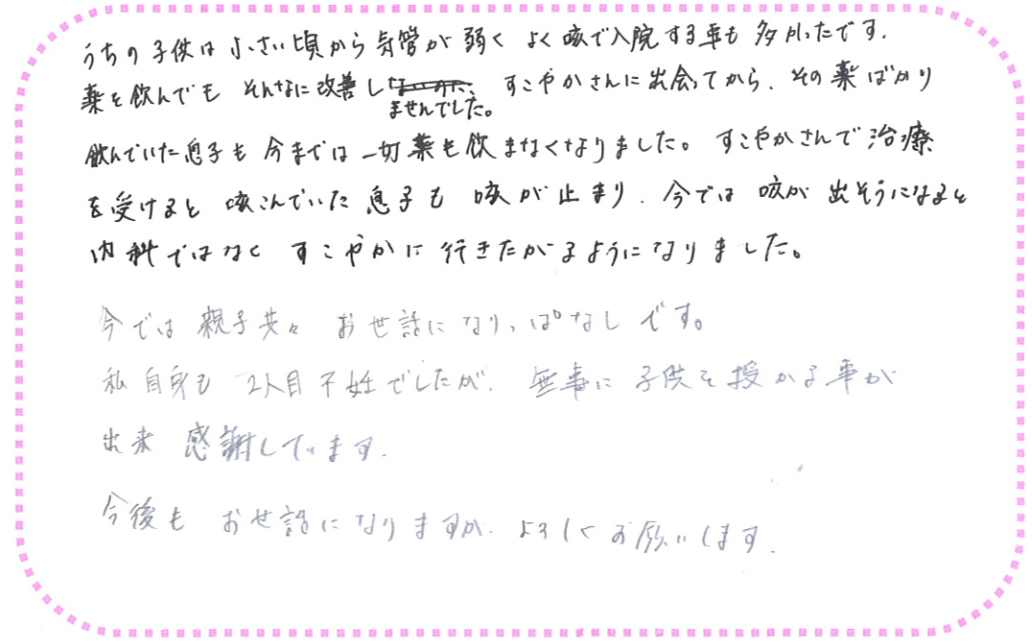 うちの子供は小さい頃から気管が弱くよく咳で入院する事も多かったです.
薬を飲んでもそんなに改善しませんでした。すこやかさんに出会ってから、その薬ばかり
飲んでいた息子も今までは一切薬も飲まなくなりました。すこやかさんで治療
を受けると咳こんでいた息子も咳が止まり、今では咳が出そうになると
内科ではなくすこやかに行きたがるようになりました。
今では親子共々お世話になりっぱなしです。
私自身も2人目不妊でしたが、無事に子供を授かる事が
出来感謝しています.
今後もお世話になりますが、よろしくお願いします.